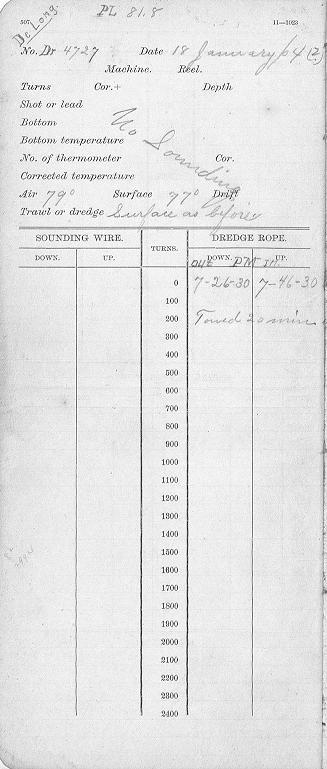 De Long.
PL 81.8
507. 11—1023
No. Dr 4727 Date 18 January /04 (2)
Machine. Reel.
Turns Cor. + Depth
Shot or lead
Bottom
No Sounding
Bottom temperature
No. of thermometer Cor.
Corrected temperature
Air 79° Surface 77° Drift
Trawl or dredge Surface as before
SOUNDING WIRE. TURNS. DREDGE ROPE.
DOWN. UP. DOWN. UP.
Out PM In
0 7-26-30 7-46-30
100
200 Towed 20 min
300
400
500
600
700
800
900
1000
1100
1200
1300
1400
1500
1600
1700
1800
1900
2000
2100
2200
2300
2400